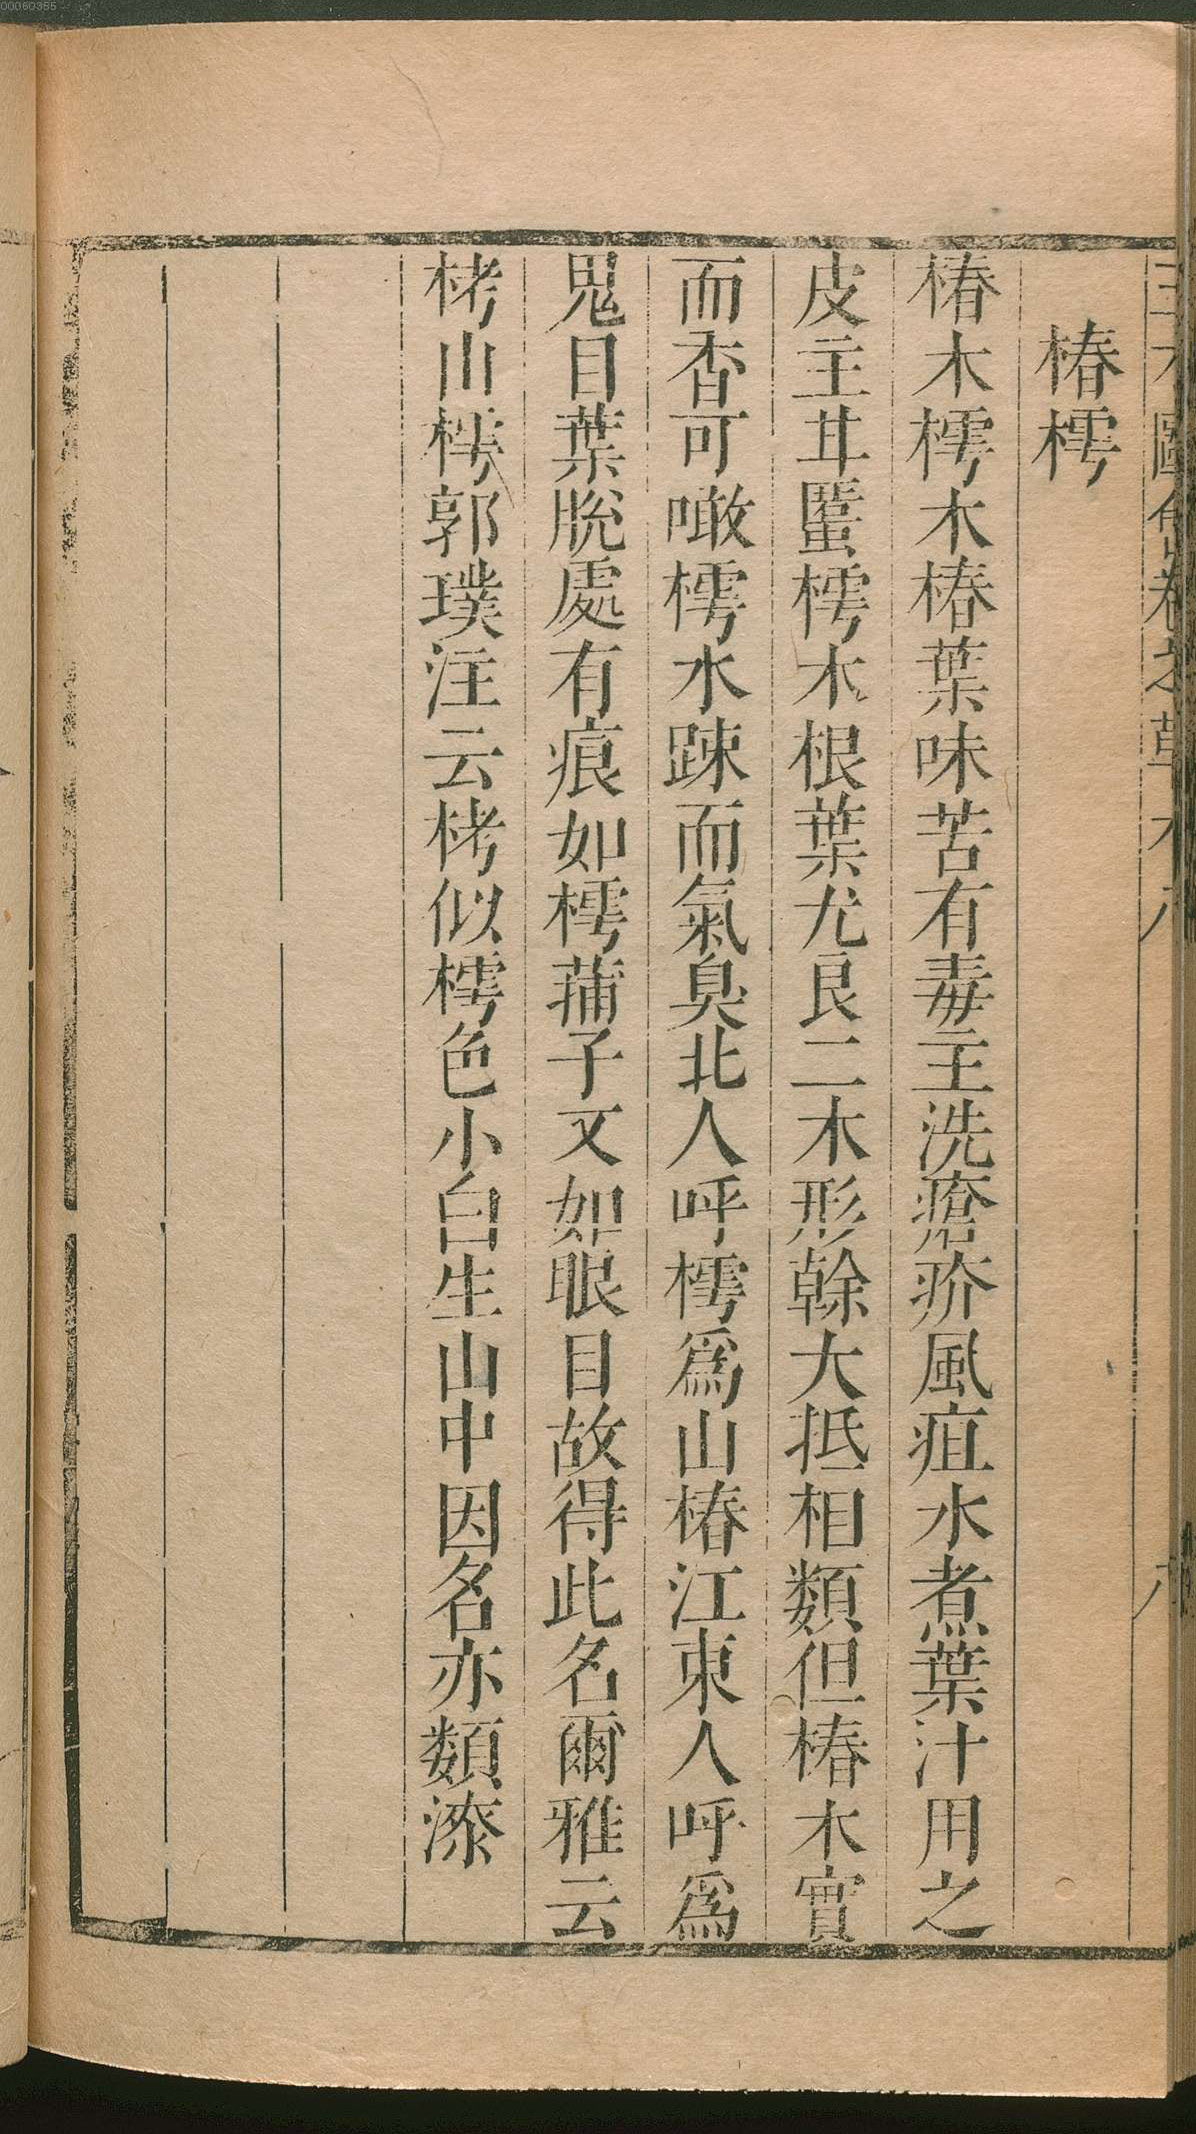 椿樗
椿木樗木椿葉味苦有毒主洗瘡疥風疽水煮葉汁用之
皮主甘䘌樗木根葉尤良二木形榦大抵相類但椿木實
而香可噉樗木踈而氣臭北人呼樗爲山椿江東人呼爲
鬼目葉脫處有痕如樗蒲子又如眼目故得此名爾雅云
栲山樗郭璞注云栲似樗色小白生山中因名亦類漆
00060355